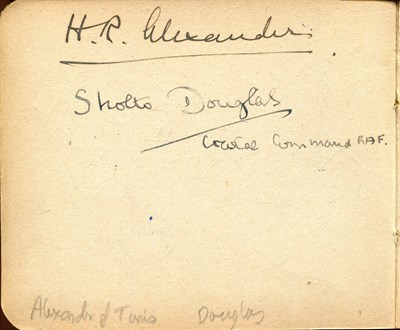 H.R. Alexander.
Sholto Douglas
Coastal Command RAF.
Alexander of Tunis Douglas